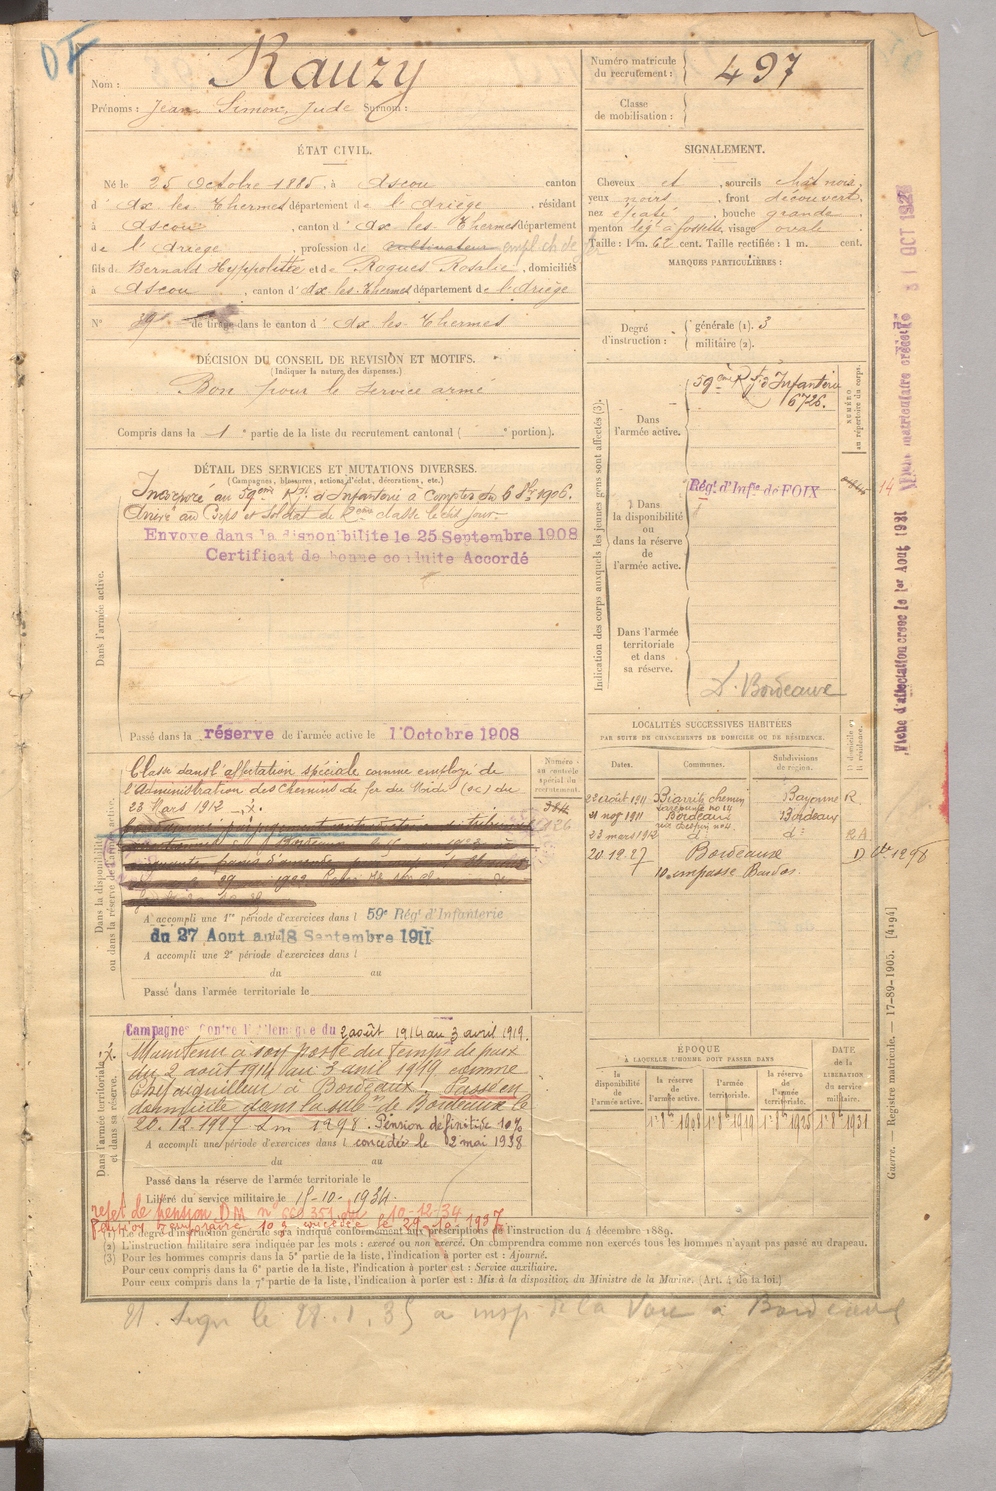 Nom : Rauzy
Prénoms : Jean Simon, Jude Surnom :
Numéro matricule du recrutement : 497
Classe de mobilisation :
ÉTAT CIVIL.
Né le 25 Octobre 1885, à Ascou canton
d' Ax les Thermes département de l'Ariège, résidant
à Ascou, canton d' Ax les Thermes département
de l'Ariège, profession de cultivateur empl. ch de fer
fils de Bernard Hyppolitte et de Roques Rosalie, domiciliés
à Ascou, canton d' Ax les Thermes département de l'Ariège
N° 39 de tirage dans le canton d' Ax les Thermes
SIGNALEMENT.
Cheveux et, sourcils chât noirs,
yeux noirs, front découvert,
nez épaté, bouche grande
menton légt à fossette, visage ovale
Taille : 1 m. 62 cent. Taille rectifiée : 1 m. cent.
MARQUES PARTICULIÈRES :
Degré d'instruction :
générale (1). 3
militaire (2).
DÉCISION DU CONSEIL DE REVISION ET MOTIFS.
(Indiquer la nature des dispenses.)
Bon pour le service armé
Compris dans la 1e partie de la liste du recrutement cantonal ( e portion).
DÉTAIL DES SERVICES ET MUTATIONS DIVERSES.
(Campagnes, blessures, actions d'éclat, décorations, etc.)
Dans l'armée active.
Incorporé au 59ème Rgt d'Infanterie à compter du 6 8bre 1906.
Arrivé au Corps et soldat de 2ème classe le dit jour.
Envoyé dans la disponibilité le 25 Septembre 1908
Certificat de bonne conduite Accordé
Passé dans la réserve de l'armée active le 1er Octobre 1908
Indication des corps auxquels les jeunes gens sont affectés (3).
NUMÉRO au répertoire du corps.
Dans l'armée active.
59ème Rgt d'Infanterie
6726.
Dans la disponibilité ou dans la réserve de l'armée active.
Régt d'Infie de FOIX
Dans l'armée territoriale et dans sa réserve.
D. Bordeaux
14
Fiche matriculaire créée le 31 OCT 192
Fiche d'affectation créée le 1er Août 1931
Dans la disponibilité ou dans la réserve de l'armée active.
Numéro au contrôle spécial du recrutement.
Classé dans l'affectation spéciale comme employé de
l'Administration des Chemins de fer du Midi (sc) du
23 Mars 1912
A accompli une 1re période d'exercices dans l 59e Régt d'Infanterie
du 27 Aout au 18 Septembre 1911
A accompli une 2e période d'exercices dans l
du au
Passé dans l'armée territoriale le
LOCALITÉS SUCCESSIVES HABITÉES
PAR SUITE DE CHANGEMENTS DE DOMICILE OU DE RÉSIDENCE.
Dates. Communes. Subdivisions de région. D domicile ou R résidence.
22 août 1911 Biarritz chemin Bayonne R
21 nov 1911 Bordeaux Bordeaux
23 mars 1912 d° d° R A
20.12.27 Bordeaux D
10 impasse Bardos
Dans l'armée territoriale et dans sa réserve.
Campagne contre l'Allemagne du 2 août 1914 au 3 avril 1919.
Maintenu à son poste du temps de paix
du 2 août 1914 au 3 avril 1919 comme
Chef aiguilleur à Bordeaux. Passé en
domicile dans la subon de Bordeaux le
20.12.1927 Lm 1298. Pension définitive 10%
A accompli une période d'exercices dans l concédée le 2 mai 1938
du au
Passé dans la réserve de l'armée territoriale le
Libéré du service militaire le 15-10-1934.
rejet de pension D.M n° 66 351 du 10-12-34
Pension temporaire 10% concédée le 29-10-1937
ÉPOQUE
À LAQUELLE L'HOMME DOIT PASSER DANS
DATE de la LIBÉRATION du service militaire.
la disponibilité de l'armée active. la réserve de l'armée active. l'armée territoriale. la réserve de l'armée territoriale.
1er 8bre 1908 1er 8bre 1919 1er 8bre 1925 1er 8bre 1931
(1) Le degré d'instruction générale sera indiqué conformément aux prescriptions de l'instruction du 4 décembre 1889.
(2) L'instruction militaire sera indiquée par les mots : exercé ou non exercé. On comprendra comme non exercés tous les hommes n'ayant pas passé au drapeau.
(3) Pour les hommes compris dans la 5e partie de la liste, l'indication à porter est : Ajourné.
Pour ceux compris dans la 6e partie de la liste, l'indication à porter est : Service auxiliaire.
Pour ceux compris dans la 7e partie de la liste, l'indication à porter est : Mis à la disposition du Ministre de la Marine. (Art. 4 de la loi.)
Guerre. — Registre matricule. — 17-89-1905. [4194]
de la Voie à Bordeaux